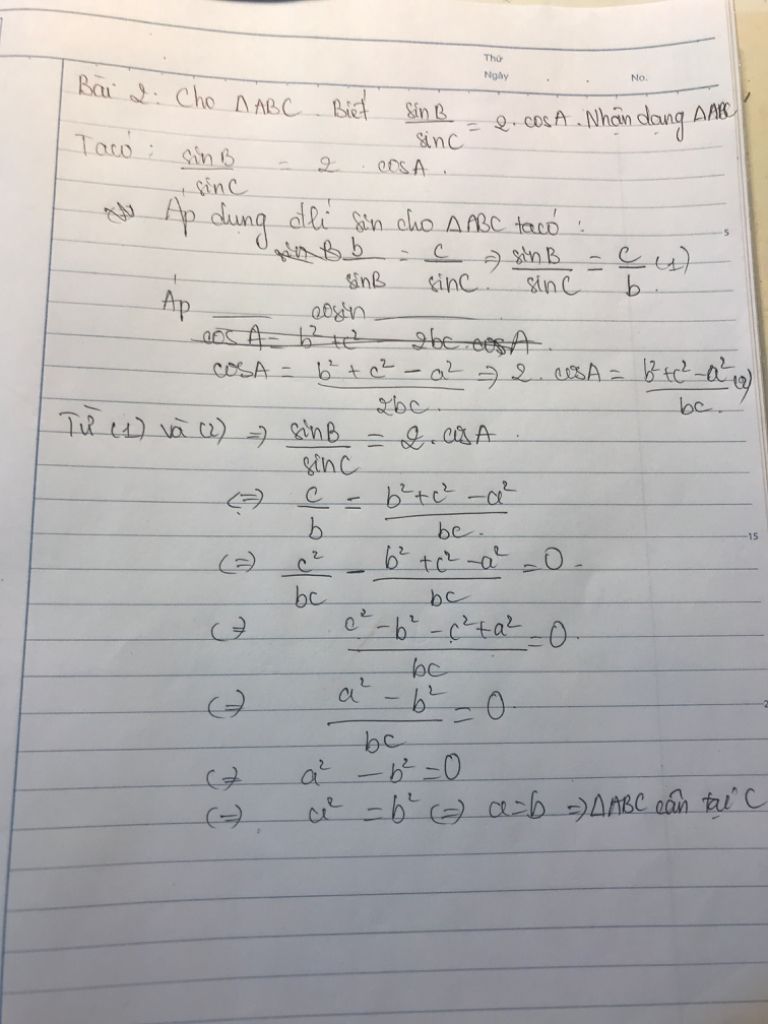 Thứ
Ngày . . No.
Bài 2: Cho ΔABC. Biết sinB/sinC = 2.cosA. Nhận dạng ΔABC
Ta có: sinB/sinC = 2.cosA.
Áp dụng đlí sin cho ΔABC ta có:
b/sinB = c/sinC. => sinB/sinC = c/b (1)
Áp ____ cosin ______
cosA = b² + c² 2bc.cosA.
cosA = (b² + c² - a²)/2bc. => 2.cosA = (b² + c² - a²)/bc. (2)
Từ (1) và (2) => sinB/sinC = 2.cosA.
(=) c/b = (b² + c² - a²)/bc.
(=) c²/bc - (b² + c² - a²)/bc = 0.
(=) (c² - b² - c² + a²)/bc = 0.
(=) (a² - b²)/bc = 0.
(=) a² - b² = 0
(=) a² = b² (=) a = b => ΔABC cân tại C
5
15
2